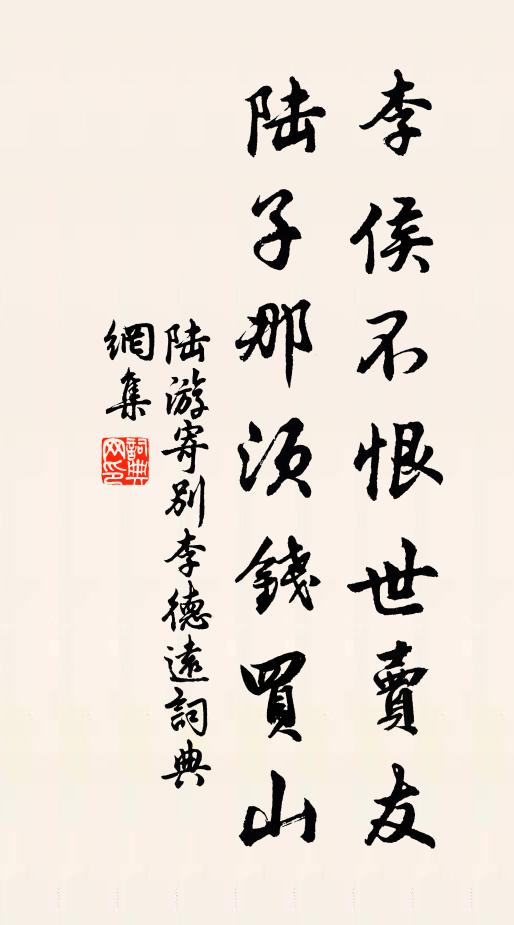 李侯不恨世賣友
陸子那須錢買山
陸游寄別李德遠詞典
網集
詞典网印